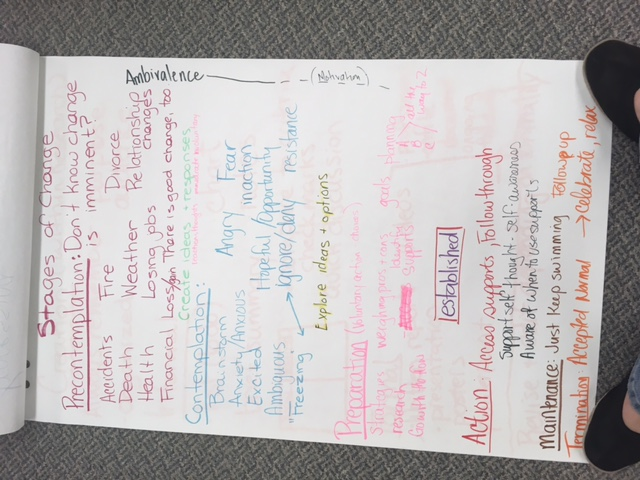 Stages of Change
Precontemplation: Don't know change
is imminent?
Accidents Fire Divorce
Death Weather Relationship changes
Health Losing jobs
Financial Loss/gain There is good change, too
Create ideas + responses
Contemplation:
Brainstorm Angry Fear
Anxiety/Anxious inaction
Excited Hopeful/Opportunity
Ambiguous Ignore/deny resistance
"Freezing"
Explore ideas + options
Preparation (Voluntary action chosen)
Strategies weighing pros + cons goals planning
research Identify A B all the
Go with the flow supports way to Z
established
Action: Access supports, Follow through
Support self thought - self awareness
Aware of when to use supports
Maintenance: Just Keep swimming Follow up
Termination Accepted Normal → Celebrate, relax
Ambivalence (Motivation)